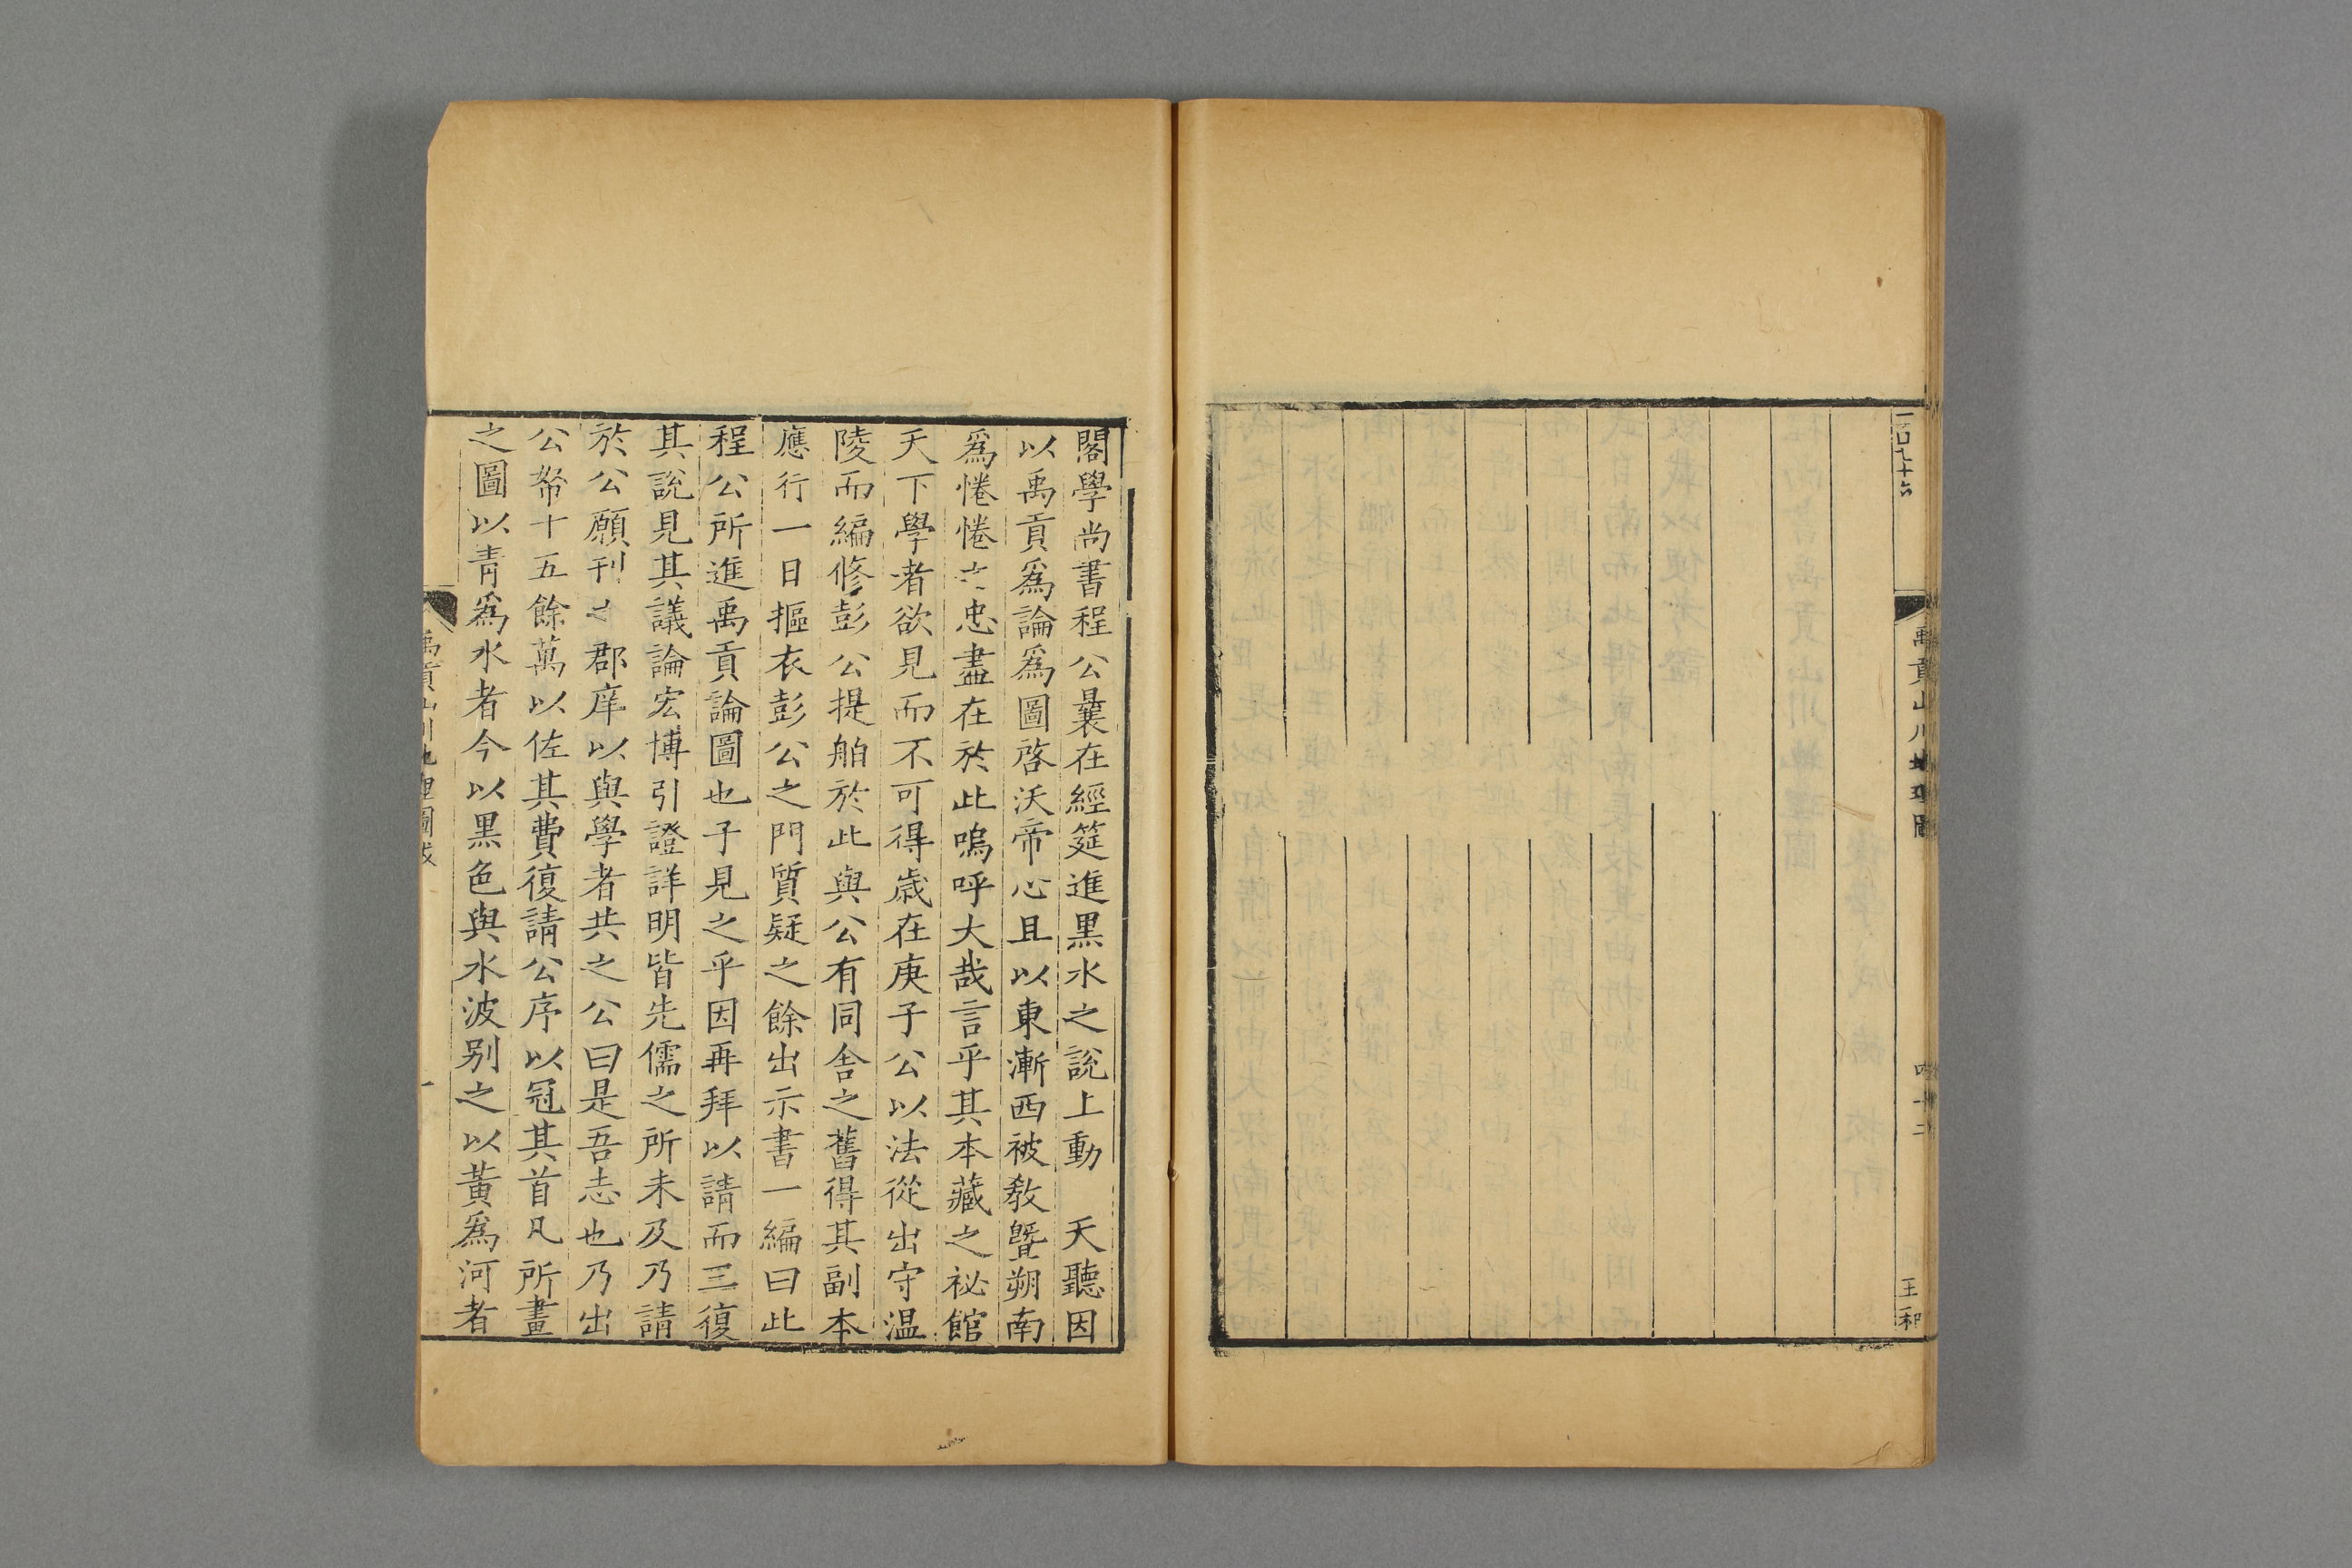 禹貢山川地理圖
四十二
王和
閣學尚書程公曩在經筵進黑水之說上動　天聽因
以禹貢爲論爲圖啓沃帝心且以東漸西被敎曁朔南
爲惓惓之忠盡在於此嗚呼大哉言乎其本藏之祕館
天下學者欲見而不可得歲在庚子公以法從出守温
陵而編修彭公提舶於此與公有同舍之舊得其副本
應行一日摳衣彭公之門質疑之餘出示書一編曰此
程公所進禹貢論圖也子見之乎因再拜以請而三復
其說見其議論宏博引證詳明皆先儒之所未及乃請
於公願刊之郡庠以與學者共之公曰是吾志也乃出
公帑十五餘萬以佐其費復請公序以冠其首凡所畫
之圖以青爲水者今以黑色與水波别之以黃爲河者
禹貢山川地理圖
一